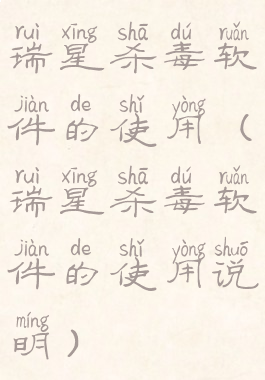 ruì xīng shā dú ruǎn
瑞星杀毒软
jiàn de shǐ yòng
件的使用（
ruì xīng shā dú ruǎn
瑞星杀毒软
jiàn de shǐ yòng shuō
件的使用说
míng
明）